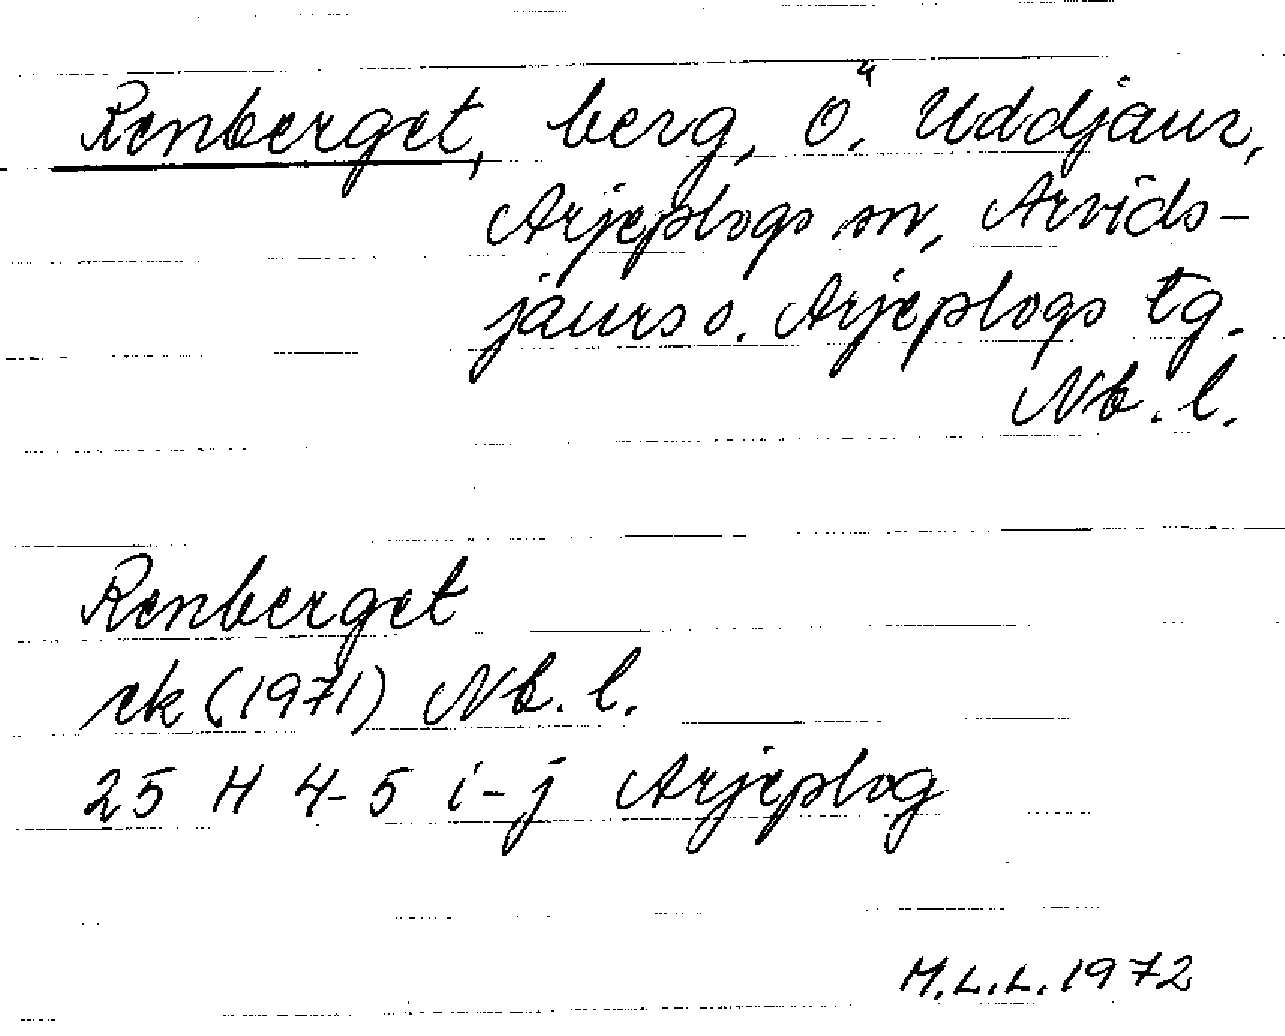 Renberget, berg, ö. Uddjaur,
Arjeplogs sn, Arvids-
jaurs o. Arjeplogs tg.
Nb. l.
Renberget
ek (1971) Nb. l.
25 H 4-5 i-j Arjeplog
M.L.L. 1972